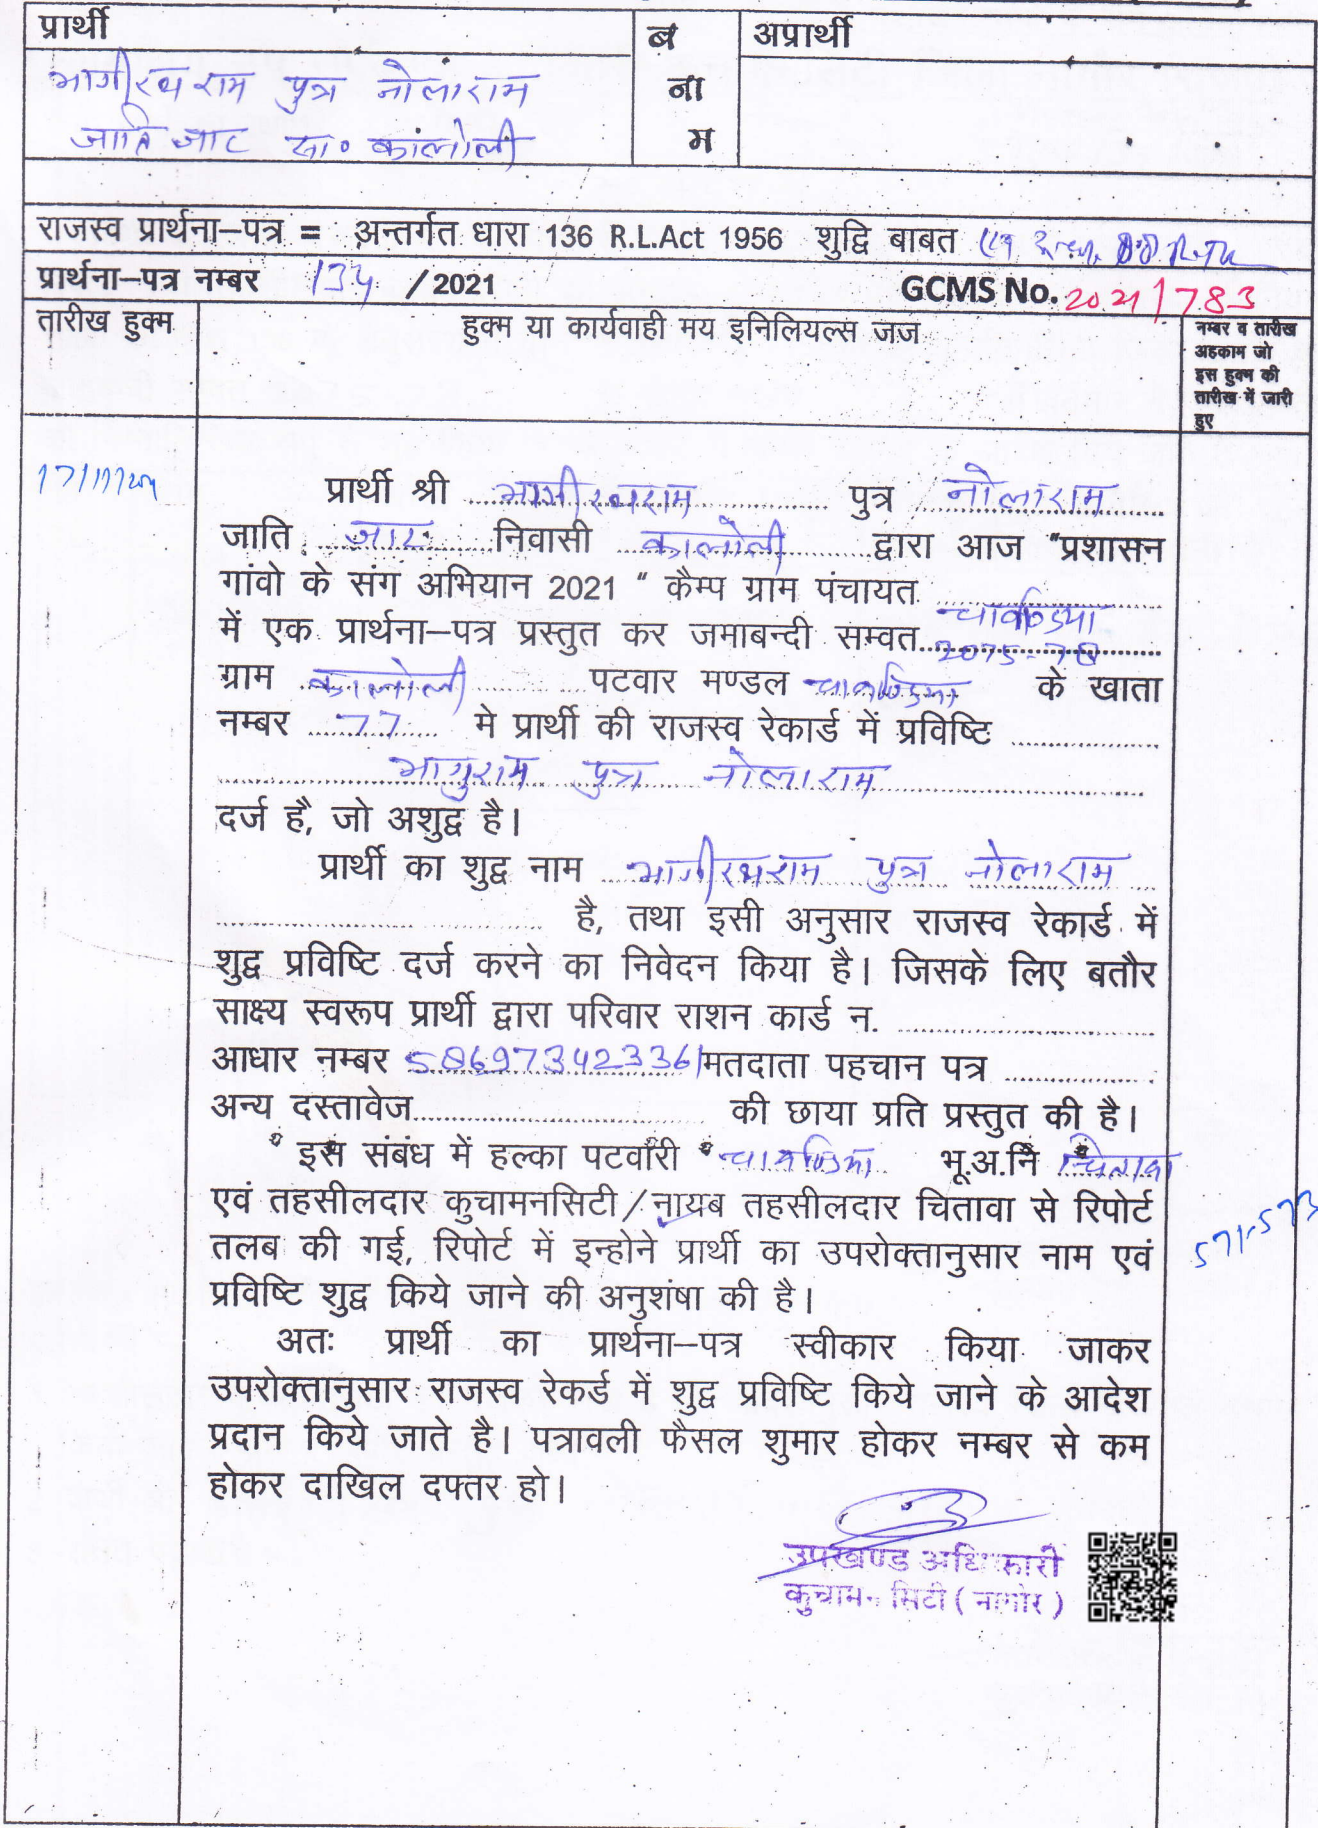 प्रार्थी
ब
ना
म
अप्रार्थी
भागीरथ राम पुत्र नोलाराम
जाति जाट सा० कांलोली
राजस्व प्रार्थना–पत्र = अन्तर्गत धारा 136 R.L.Act 1956 शुद्वि बाबत
प्रार्थना–पत्र नम्बर 134 / 2021 GCMS No. 2021/783
तारीख हुक्म
हुक्म या कार्यवाही मय इनिलियल्स जज
नम्बर व तारीख
अहकाम जो
इस हुक्म की
तारीख में जारी
हुए
प्रार्थी श्री भागीरथराम पुत्र नोलाराम
जाति जाट निवासी कालोली द्वारा आज "प्रशासन
गांवो के संग अभियान 2021 " कैम्प ग्राम पंचायत चावण्डिया
में एक प्रार्थना–पत्र प्रस्तुत कर जमाबन्दी सम्वत 2075-78
ग्राम कालोली पटवार मण्डल चावण्डिया के खाता
नम्बर 77 मे प्रार्थी की राजस्व रेकार्ड में प्रविष्टि
भागुराम पुत्र नोलाराम
दर्ज है, जो अशुद्व है।
प्रार्थी का शुद्व नाम भागीरथराम पुत्र नोलाराम
है, तथा इसी अनुसार राजस्व रेकार्ड में
शुद्व प्रविष्टि दर्ज करने का निवेदन किया है। जिसके लिए बतौर
साक्ष्य स्वरूप प्रार्थी द्वारा परिवार राशन कार्ड न.
आधार नम्बर 586973423361 मतदाता पहचान पत्र
अन्य दस्तावेज की छाया प्रति प्रस्तुत की है।
इस संबंध में हल्का पटवारी चावण्डिया भू.अ.नि चितावा
एवं तहसीलदार कुचामनसिटी/नायब तहसीलदार चितावा से रिपोर्ट
तलब की गई, रिपोर्ट में इन्होने प्रार्थी का उपरोक्तानुसार नाम एवं
प्रविष्टि शुद्व किये जाने की अनुशंषा की है।
571-573
अतः प्रार्थी का प्रार्थना–पत्र स्वीकार किया जाकर
उपरोक्तानुसार राजस्व रेकर्ड में शुद्व प्रविष्टि किये जाने के आदेश
प्रदान किये जाते है। पत्रावली फैसल शुमार होकर नम्बर से कम
होकर दाखिल दफ्तर हो।
उपखण्ड अधिकारी
कुचामन सिटी (नागोर)